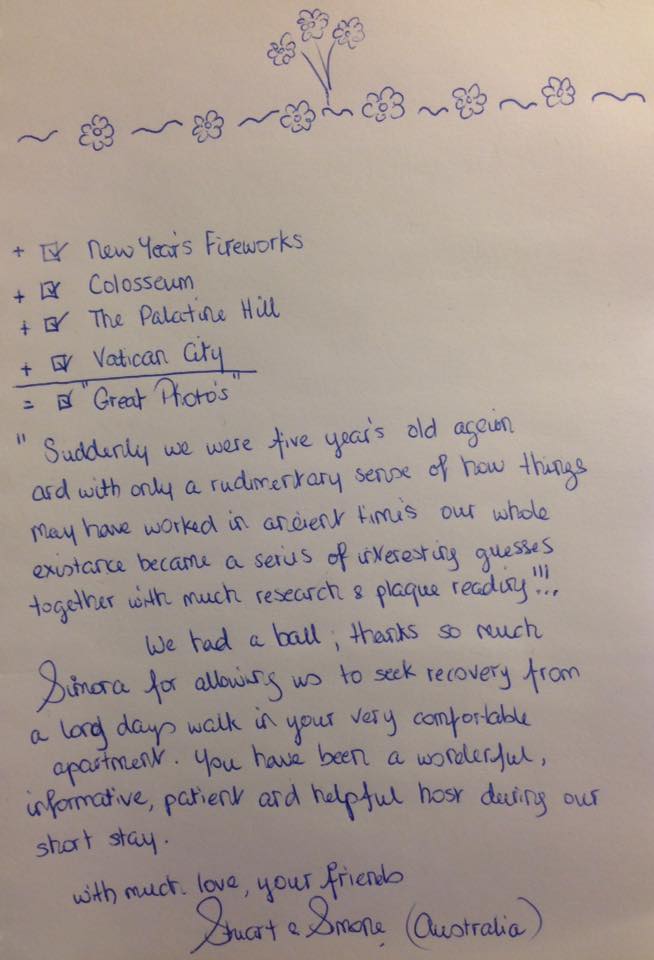 + ☑ New Year's Fireworks
+ ☑ Colosseum
+ ☑ The Palatine Hill
+ ☑ Vatican City
= ☑ "Great Photo's"
"Suddenly we were five year's old ageion
and with only a rudimentary sense of how things
may have worked in ancient time's our whole
existance became a series of interesting guesses
together with much research & plaque reading"!!...
We had a ball; thanks so much
Simona for allowing us to seek recovery from
a long days walk in your very comfortable
apartment. You have been a wonderful,
informative, patient and helpful host during our
short stay.
with much love, your friends
Stuart & Simone (Australia)